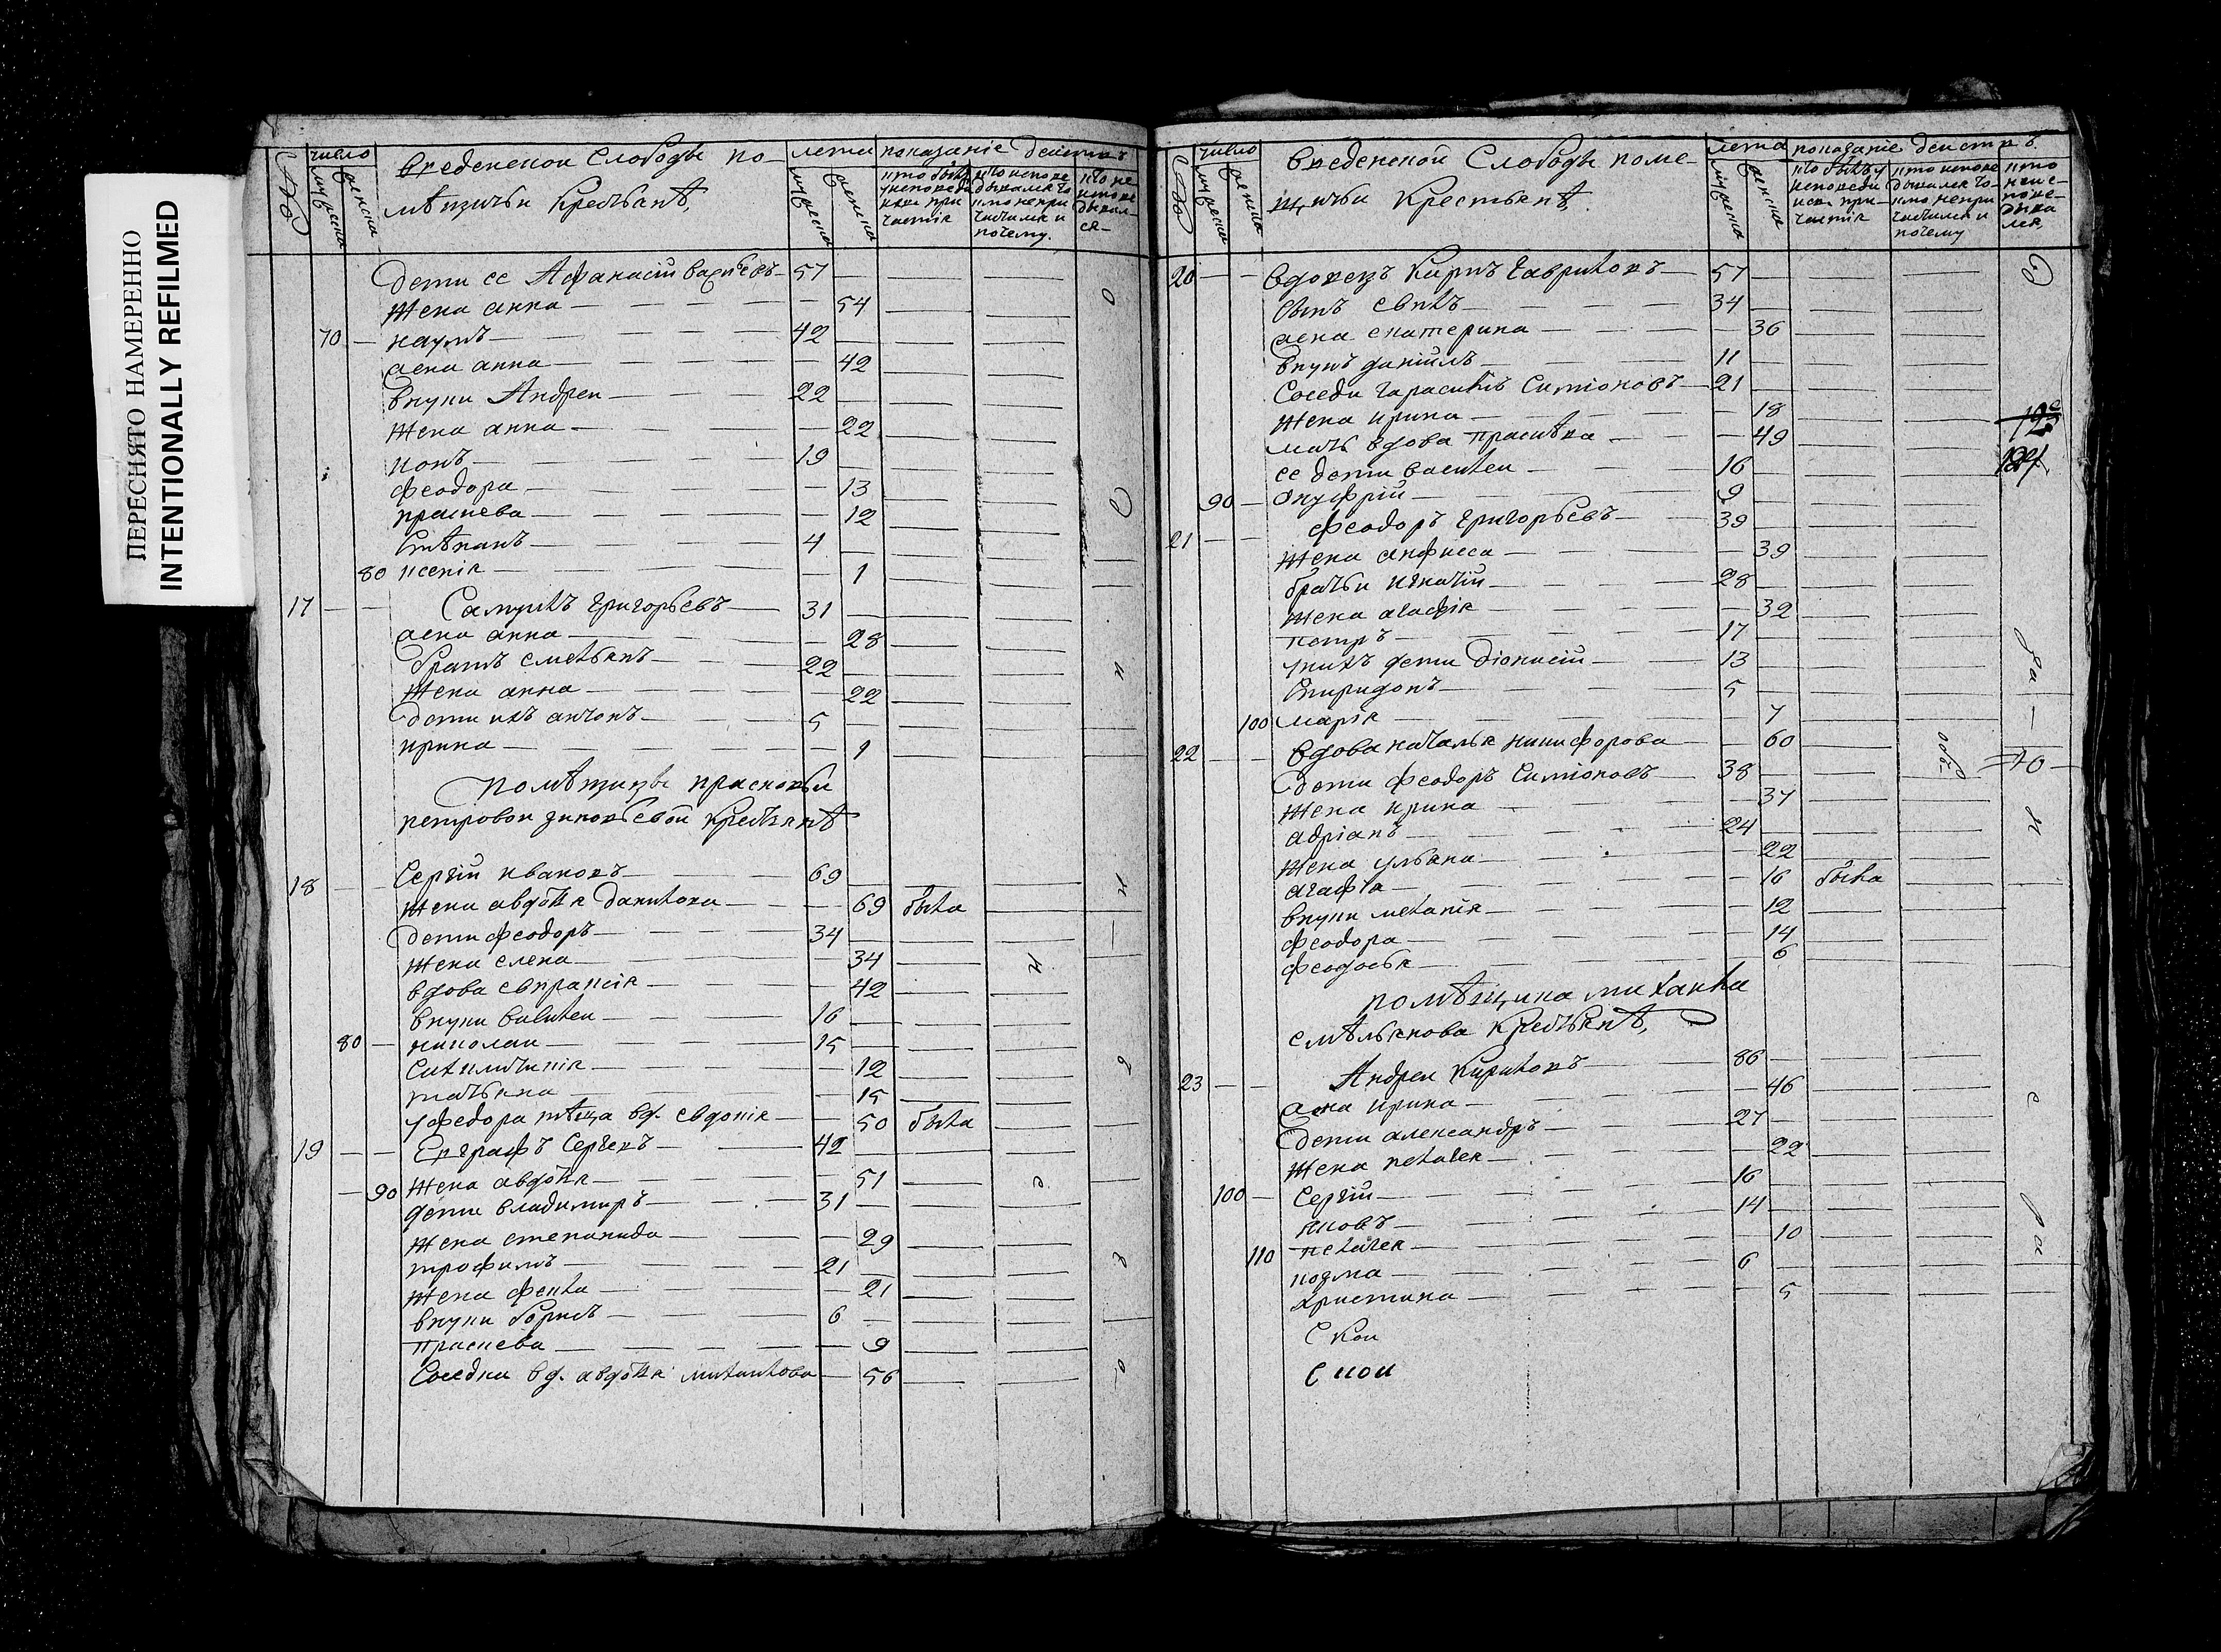 ПЕРЕСНЯТО НАМЕРЕННО
INTENTIONALLY REFILMED
число
мужеска
женска
введенскои Слободы по-
мѣщичьи Крестьянѣ,
лета
мужеска
женска
показаніе деиствъ
Дети ее Афанасіи васильевъ 57
Жена анна 54
70 наумъ 42
жена анна 42
внуки Андреи 22
Жена анна 22
ионъ 19
феодора 13
праскева 12
Стѣпанъ 4
80 ксенія 1
17 Самуилъ григорьевъ 31
жена анна 28
братъ емельянъ 22
Жена анна 22
Дети ихъ антонъ 5
ирина 1
помѣщицы прасковьи
петровои зиновьевои Крестьянѣ
18 Сергіи ивановъ 69
Жена авдотья данилова 69 была
Дети феодоръ 34
Жена елена 34
вдова евпраксія 42
внуки василеи 16
80 николаи 15
12
татьяна 15
у федора тѣща вд. евдокія 50 была
19 Евграфъ Сергеевъ 42
90 Жена авдотья 51
дети владимиръ 31
Жена степанида 29
трофимъ 21
Жена фекла 21
внуки борисъ 6
праскева 9
Соседка вд. авдотья михаилова 56
число
мужеска
женска
введенскои Слободы поме-
щичьи Крестьянѣ,
лета
мужеска
женска
показаніе деиствъ
20 вдовецъ Карпъ гавриловъ 57
сынъ 34
жена екатерина 36
внукъ даніилъ 11
Соседи гарасимъ Симіоновъ 21
Жена ирина 18
мать вдова праскѣва 49
ее дети василеи 16
90 Онуфріи 9
21 феодоръ григорьевъ 39
Жена анфиса 39
братьи игнатіи 28
Жена агафія 32
петръ 17
у нихъ дети Діонисіи 13
Спиридонъ 5
100 марія 7
22 вдова наталья никифорова 60
дети феодоръ Симіоновъ 38
Жена ирина 37
адріанъ 24
Жена ульяна 22
агафія 16 была
внуки меланія 12
феодора 14
феодосья 6
помѣщика михаила
емѣльянова Крестьянѣ,
23 Андреи Кириловъ 86
жена ирина 46
Дети александръ 27
Жена пелагея 22
100 Сергіи 16
яковъ 14
110 пелагея 10
козма 6
христина 5
С кои
С кои